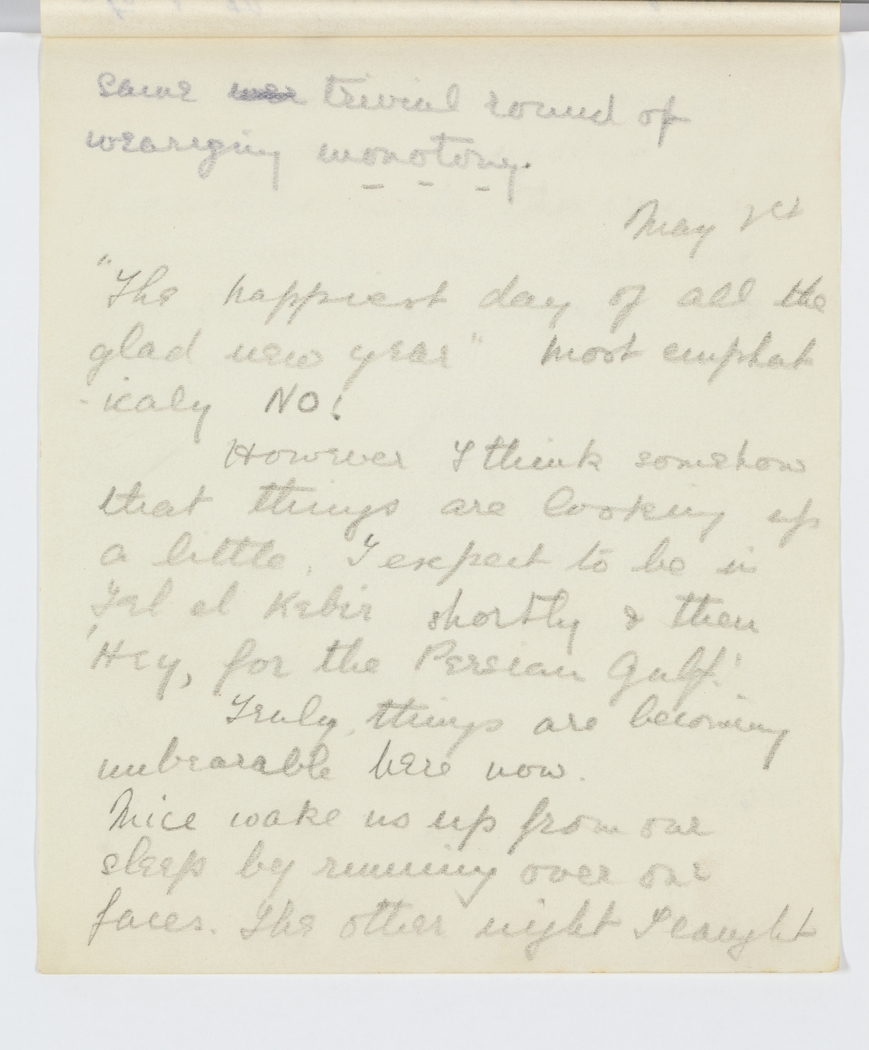 same trivial round of
wearying monotony.
May 1st
"The happiest day of all the
glad new year" Most emphat
-icaly NO!
However I think somehow
that things are looking up
a little. I expect to be in
Tel el Kebir shortly & then
'Hey, for the Persian Gulf.'
Truly, things are becoming
unbearable here now.
Mice wake us up from our
sleep by running over our
faces. The other night I caught